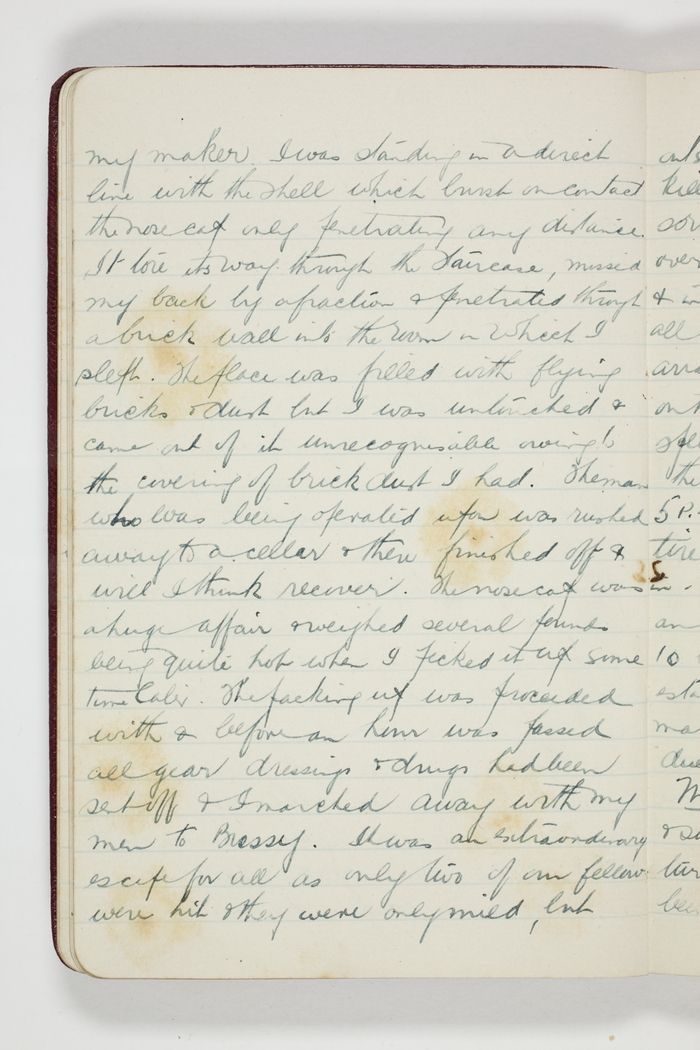 my maker. I was standing in a direct
line with the shell which burst on contact
the nose cap only penetrating any distance.
It tore its way through the staircase, missed
my back by a fraction & penetrated through
a brick wall into the room in which I
slept. The place was filled with flying
bricks & dust but I was untouched &
came out of it unrecognisable owing to
the covering of brick dust I had. The man
who was being operated upon was rushed
away to a cellar & there finished off &
will I think recover. The nose cap was
a huge affair & weighed several pounds
being quite hot when I picked it up some
time later. The packing up was proceeded
with & before an hour was passed
all gear dressings & drugs had been
sent off & I marched away with my
men to Bressy. It was an extraordinary
escape for all as only two of our fellows
were hit & they were only mild, but
over
& in
all
the
5 P.
an
10